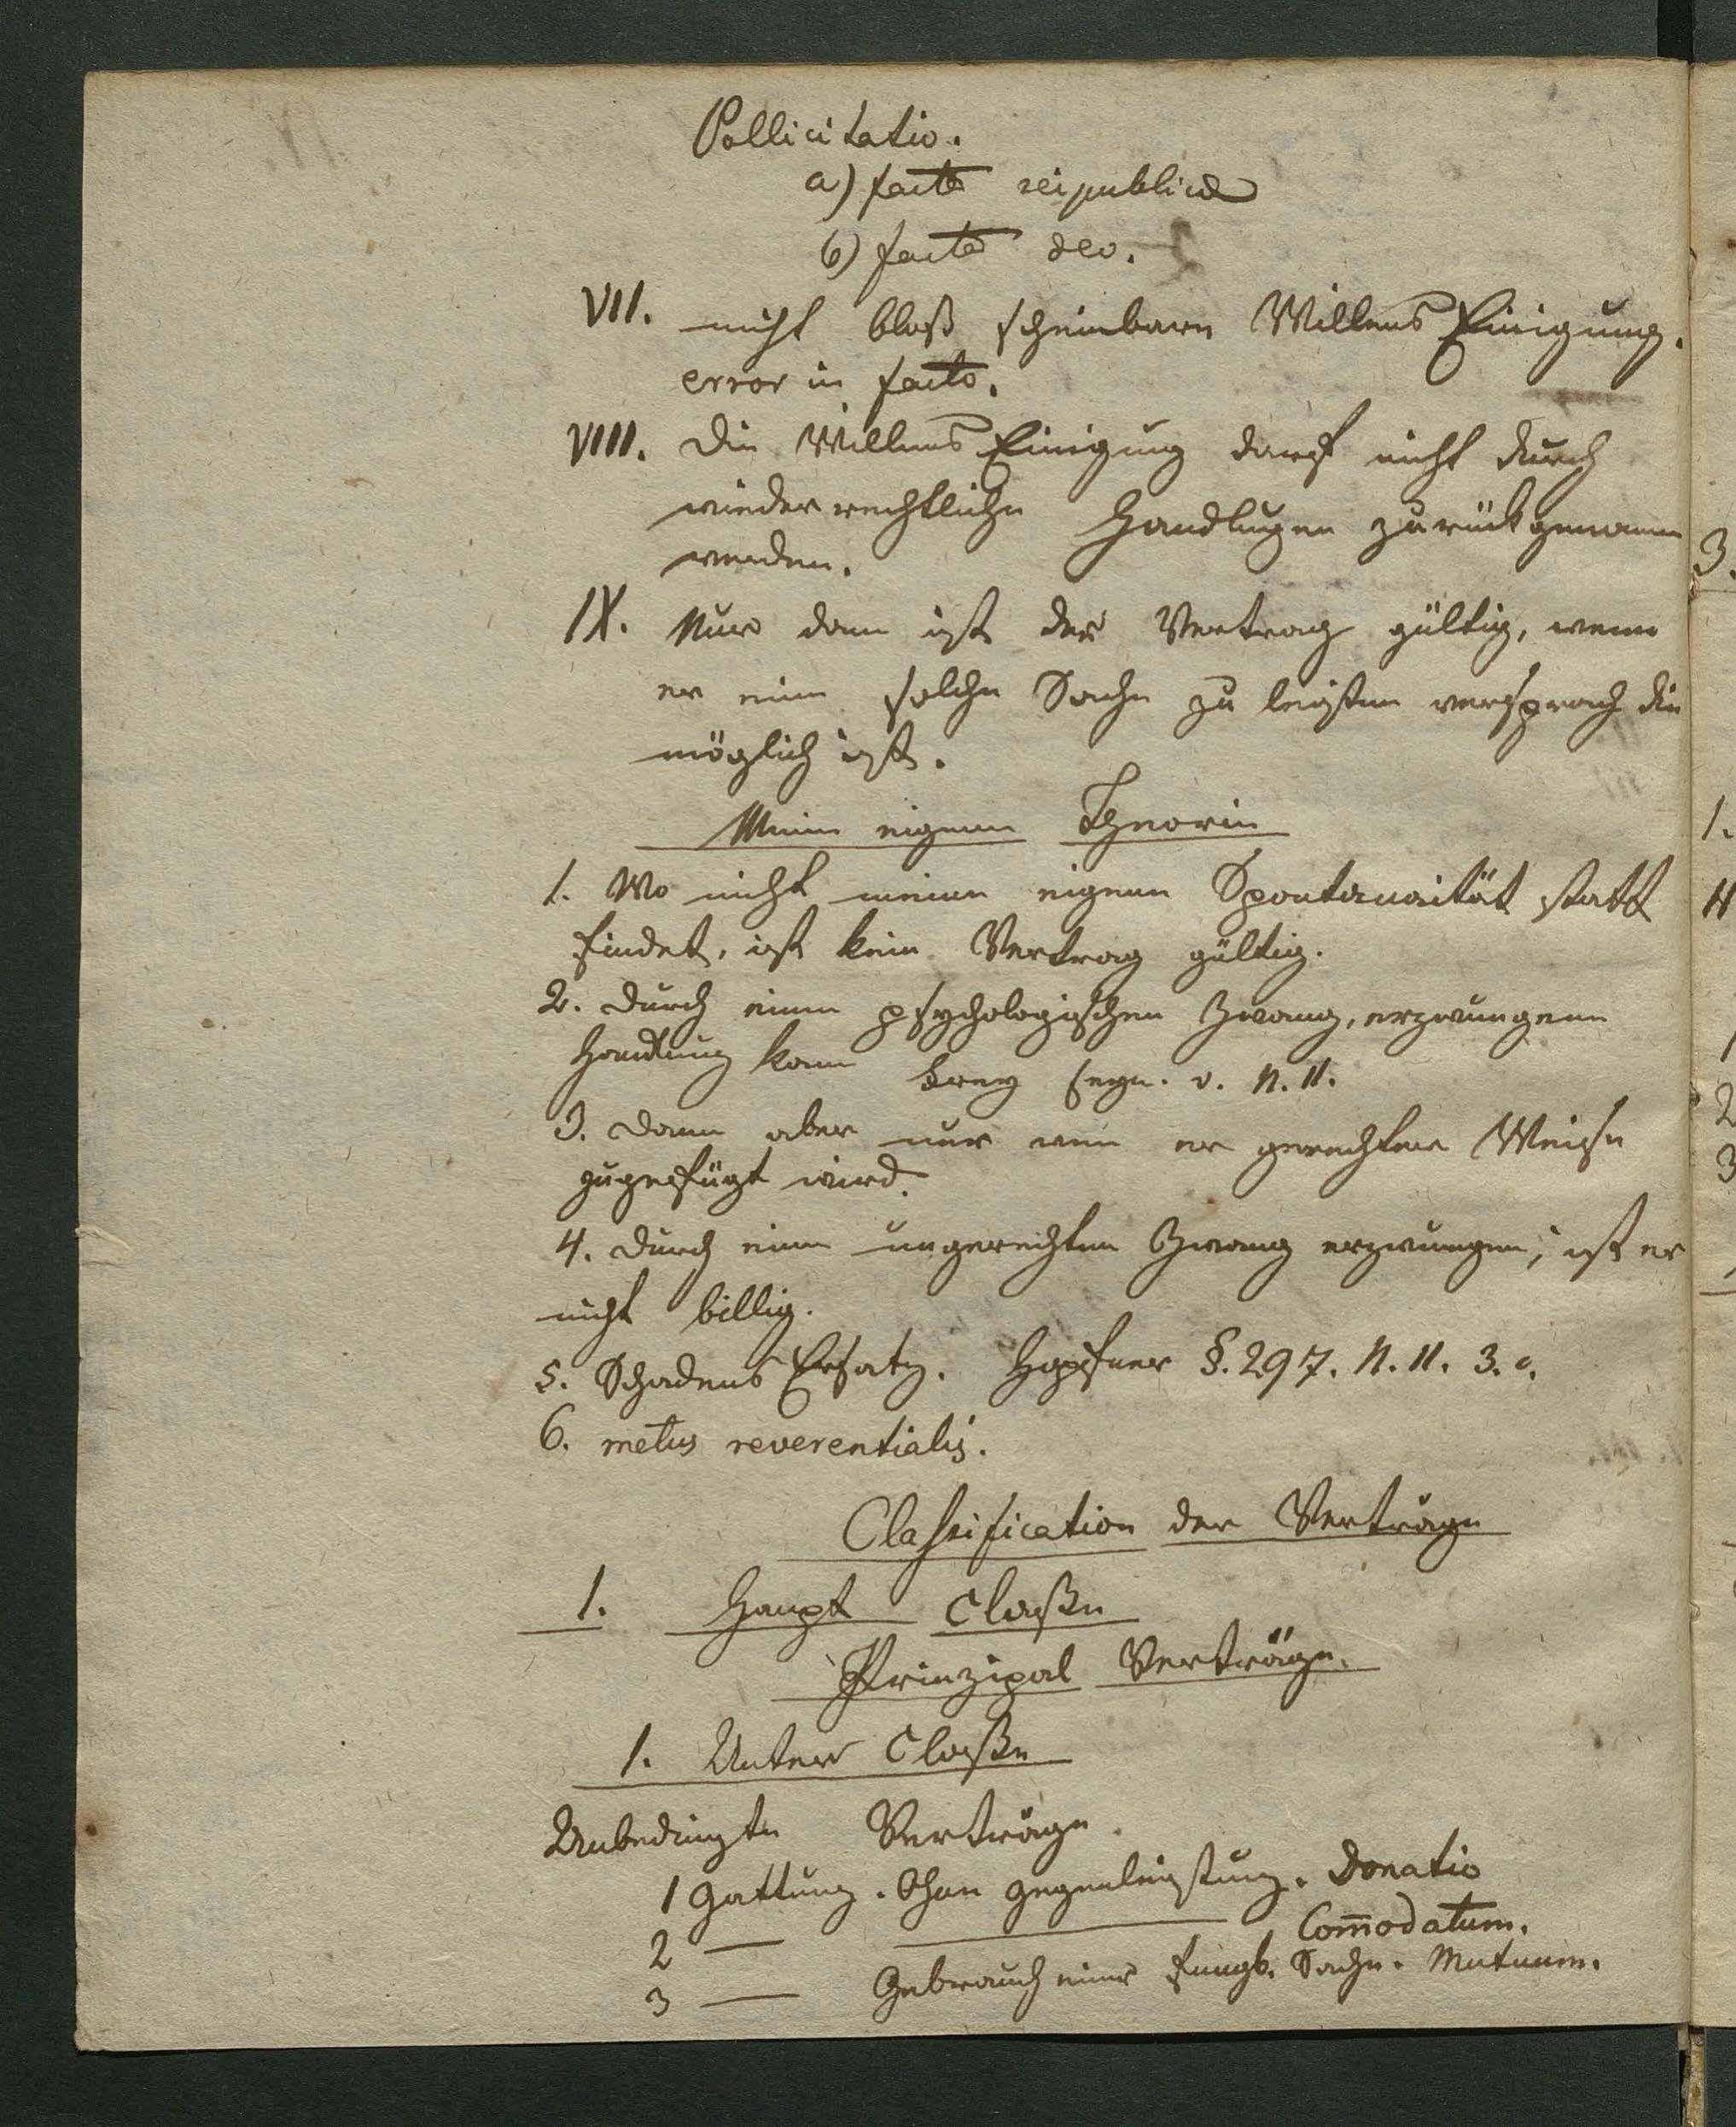 Pollicitatio.
a) facta reipublicae
b) facta deo.
VII. nicht bloß scheinbare Willens Einigung.
error in facto.
VIII. Die Willens Einigung darf nicht durch
wiederrechtliche Handlugen zurückgenomen
werden.
IX. Nur dann ist der Vertrag gültig, wenn
er eine solche Sache zu leisten versprach die
möglich ist.
Meine eigene Theorie
1. Wo nicht meine eigene Spontanaität statt
findet, ist kein Vertrag gültig.
2. Durch einen psychologischen Zwang, erzwungene
Handlung kann frey seyn. v. N. II.
3. Dann aber nur wen er gerechter Weise
zugefügt wird.
4. Durch einen ungerechten Zwang erzwungen, ist er
nicht billig.
5. Schadens Ersatz. Hopfner §. 297. N. II. 3. c.
6. metus reverentialis.
Classification der Verträge
1. Haupt Classe
Prinzipal Verträge.
1. Unter Classe
Unbedingte Verträge.
1 Gattung. Ohne Gegenleistung. Donatio
2 — — Com̄odatum.
3 — Gebrauch einer fungb. Sache. Mutuum.